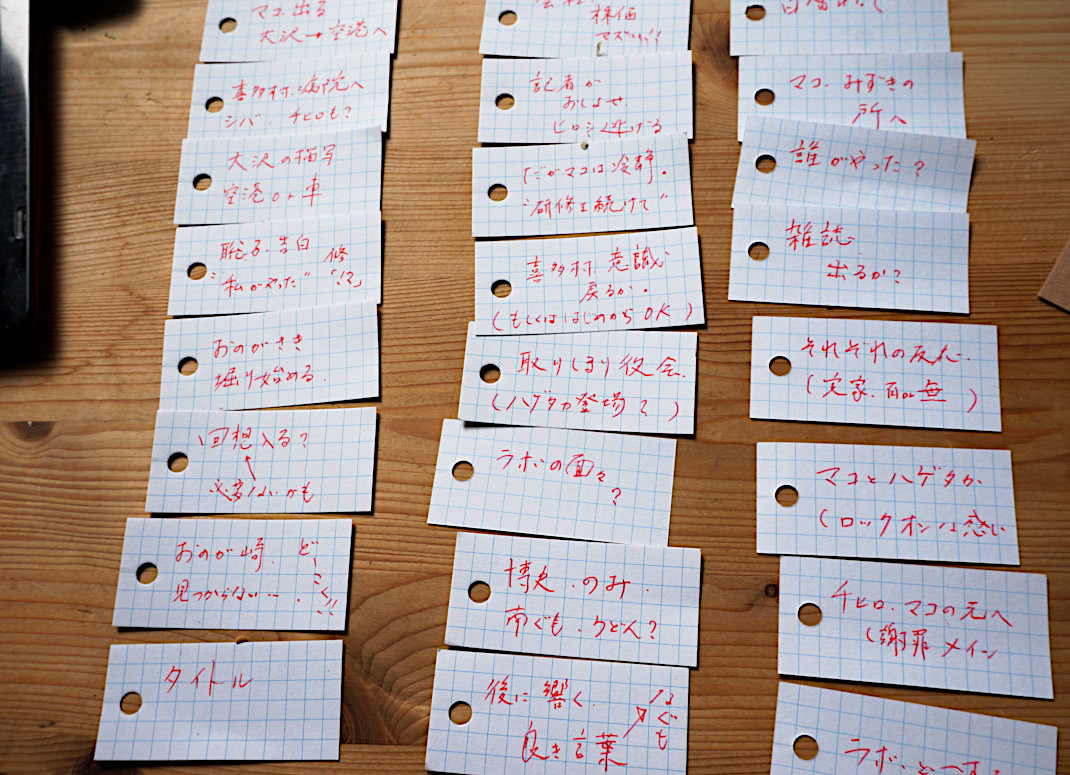 マコ出る
大沢→空港へ
喜多村.病院へ
シバ.チヒロも?
大沢の描写.
空港or車
恥じる.告白
"私がやった"
修
「!?」
おのがさき
堀り始める.
回想入る?
必要ないかも
おのが崎.
見つからない….
どーこく!!
タイトル
株価
マズい!!
記者が
おしよせ
ヒロシ逃げる
だがマコは冷静.
"研修を続けて"
喜多村.意識
戻るか.
(もしくははじめからOK)
取りしまり役会.
(ハゲタカ登場?)
ラボの面々
?
博史.のみ.
南ぐも.うどん?
後に響く.
良き言葉
なぐも
マコ.みずきの
所へ
誰がやった?
雑誌.
出るか?
それぞれの反応.
(実家.有or無)
マコとハゲタカ
(ロックオンは惑い
チヒロ.マコの元へ
(謝罪メイン
ラボ.